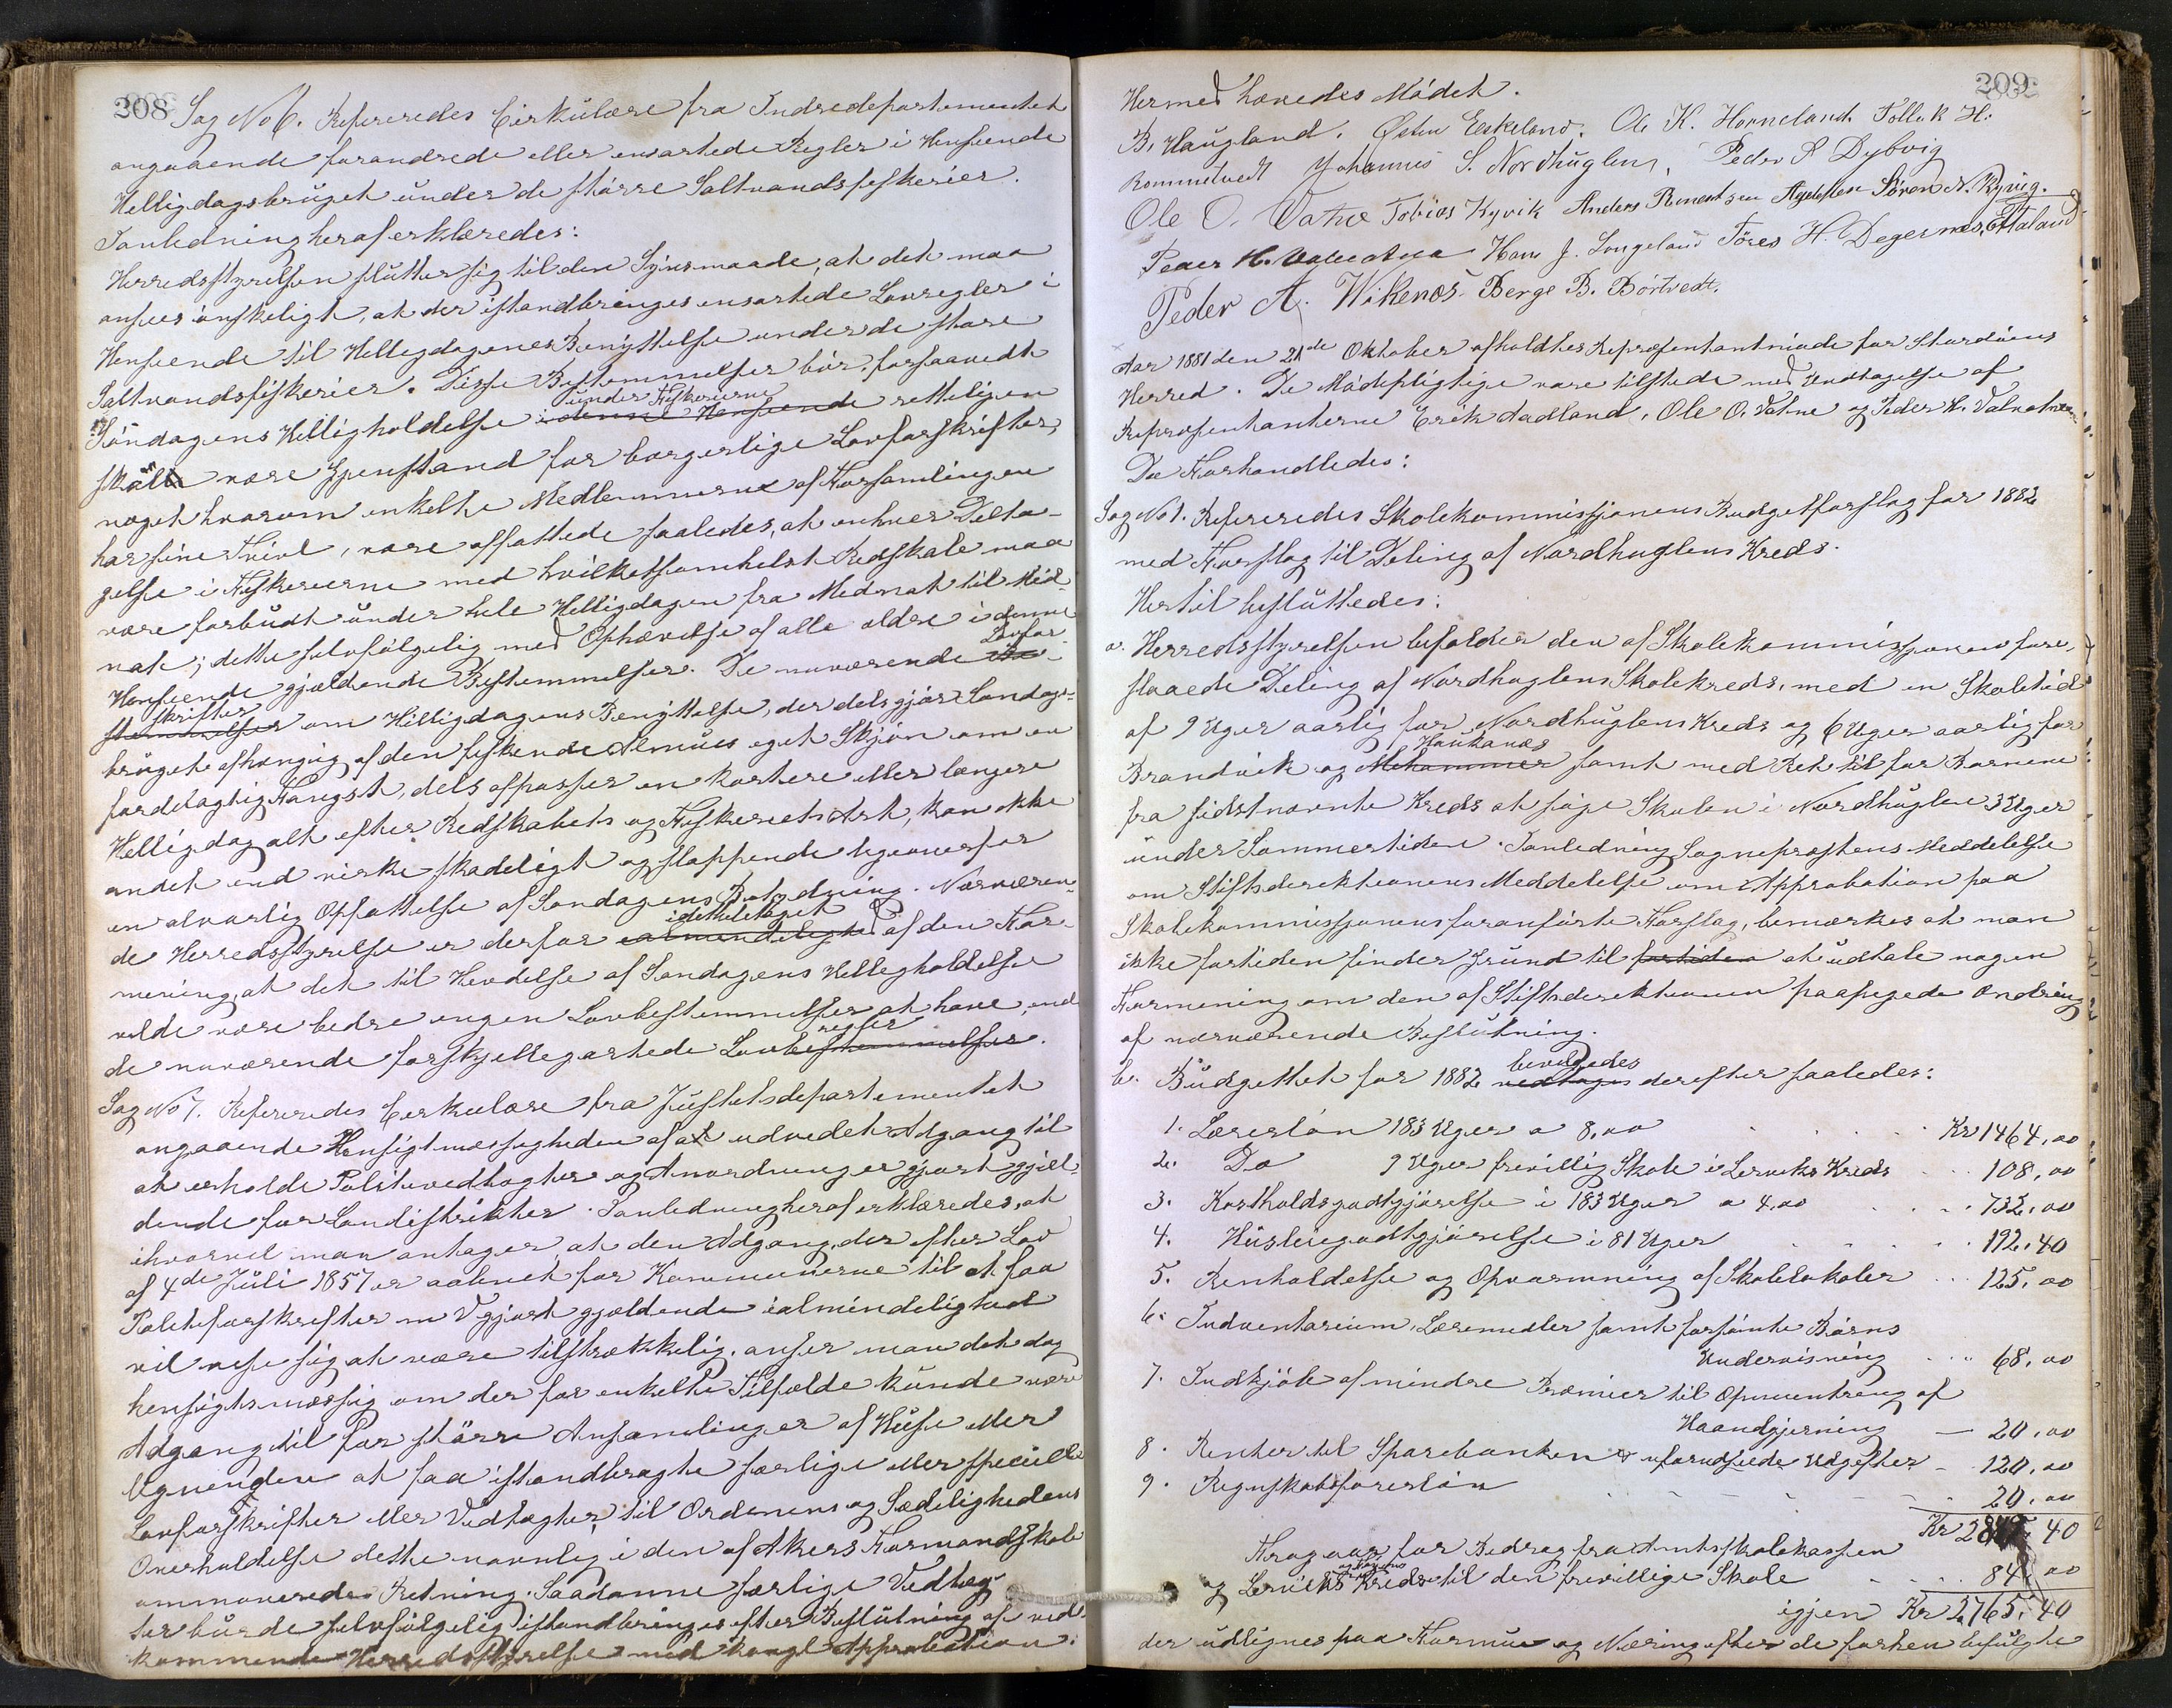 208
Sag No 6. Refereredes Cirkulære fra Indredepartementet
angaaende forandrede eller ensartede Regler i Henseende
Helligdagsbruget under de større Saltvandsfiskerier.
Ianledning heraf erklæredes:
Herredsstyrelsen slutter sig til den Synsmaade, at det maa
ansees ønskeligt, at der istandbringes ensartede Lovregler i
Henseende til Helligdagenes Benyttelse under de store
Saltvandsfiskerier. Disse Bestemmelser bør, forsaavidt
under Fiskerierne
Søndagens Helligholdelse i denne Henseende rettelig
skal være Gjenstand for borgerlige Lovforskrifter,
noget hvorom enkelte Medlemmer af Forsamlingen
har sine Tvivl, være affattede saaledes, at enhver Delta-
gelse i Fiskerierne med hvilketsomhelst Redskab maa
være forbudt under hele Helligdagen fra Midnat til Mid-
nat; dette selvfølgelig med Ophævelse af alle ældre i denne
Henseende gjældende Bestemmelser. De nuværende Be- Lovfor-
skrifter
stemmelser om Helligdagens Benyttelse, der dels gjør Søndags-
bruget afhængig af den fiskende Almues eget Skjøn om en
fordelagtig Fangst, dels afpasser en kortere eller længere
Helligdag alt efter Redskabets og Fiskeriets Art, kan ikke
andet end virke skadeligt og sløppende ligeoverfor
en alvorlig Opfattelse af Søndagens Betydning. Nærværen-
idetheletaget
de Herredsstyrelse er derfor ialmindelighed af den For-
mening, at det til Hævdelse af Søndagens Helligholdelse
vilde være bedre ingen Lovbestemmelser at have, end
regler
de nuværende forskjelligartede Lovbestemmelser.
Sag No 7. Refereredes Cirkulære fra Justitsdepartementet
angaaende Hensigtmæssigheden af at udvidet Adgang til
at erholde Politivedtægter og Anordninger gjort gjæl-
dende for Landistrikter. Ianledning heraf erklæredes, at
ihvorvel man antager, at den Adgang, der efter Lov
af 4de Juli 1857 er aabnet for Kommunerne til at faa
Politiforskrifter m V gjort gjældende ialmindelighed
vil vise sig at være tilstrækkelig, anser man det dog
hensigtsmæssig om der for enkelte Tilfælde kunde være
Adgang til for større Ansamlinger af Huse eller
lignende at faa istandbragte særlige eller specielle
Lovforskrifter eller Vedtægter til Ordenens og Sædelighedens
Overholdelse dette navnlig i den af Akers Formandskab
ommeldte Retning. Saadanne særlige Vedtæg-
ter burde selvfølgelig istandbringes efter Beslutning af ved-
kommende Herredsstyrelse med kongl Approbation.
209
Hermed hævedes Mødet.
B. Haugland. Østen Eskeland. Ole K. Horneland Tollak H.
Rommetvedt Johannes S. Nordhuglen, Peder P Dybvig
Ole O. Vatne Tobias Kyvik Anders Søren N. Kyvig.
Peder H. Valvatnæ Hans J. Langeland Tøres H. Degernæs,
Peder A. Wikenæs Berge B. Børtvedt.
Aar 1881 den 21de Oktober afholdtes Repræsentantmøde for Stordøens
Herred. De Mødepligtige vare tilstede med Undtagelse af
Repræsentanterne Erik Aadland, Ole O. Vatne og Peder H. Valvatne
Da Forhandledes:
Sag No 1. Refereredes Skolekommissjonens Budgetforslag for 1882
med Forslag til Deling af Nordhuglens Kreds.
Hertil besluttedes:
a. Herredsstyrelsen bifalder den af Skolekommissjonen fore-
slaaede Deling af Nordhuglens Skolekreds, med en Skoletid
af 9 Uger aarlig for Nordhuglens Kreds og 6 Uger aarlig for
Haukanæs
Brandvik og Mehammer samt med Ret til for Børnene
fra sidstnævnte Kreds at søge Skolen i Nordhuglen 3 Uger
under Sommertiden. Ianledning Sogneprestens Meddelelse
om Stiftsdirektionens Meddelelse om Approbation paa
Skolekommissjonens foranførte Forslag, bemærkes at man
ikke fortiden finder Grund til fortiden at udtale nogen
Formening om den af Stiftsdirektionen paapegede Ændring
af nærværende Beslutning.
bevilgedes
b. Budgettet for 1882 vedtages derefter saaledes:
1. Læreløn 183 Uger a 8,00 Kr 1464,00
2. Do 9 Uger frivillig Skole i Lerviks Kreds 108,00
3. Kostholdsgodtgjørelse i 183 Uger a 4,00 732,00
4. Husleiegodtgjørelse i 81 Uger 192,40
5. Renholdelse og Opvarmning af Skolelokaler 125,00
6. Indventarium, Læremidler samt forsømte Børns
Undervisning 68,00
7. Indkjøb af mindre Præmier til Opmuntring af
Haandgjerning 20,00
8. Renter til Sparebanken & uforudseede Udgifter 120,00
9. Regnskabsførerløn 20,00
Kr 2849,40
Fragaar for Bidrag fra Amtsskolekassen
og Lerviks Kreds til den frivillige Skole 84,00
igjen Kr 2,765,40
der udlignes paa Formue og Næring efter de forhen befulgte